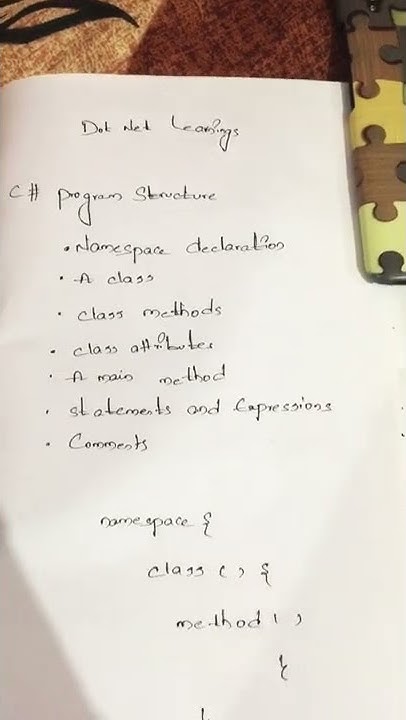 Dot Net Learnings
C# program structure
• Namespace declaration
• A class
• class methods
• class attributes
• A main method
• statements and Expressions
• Comments
namespace {
class ( ) {
method ( )
{